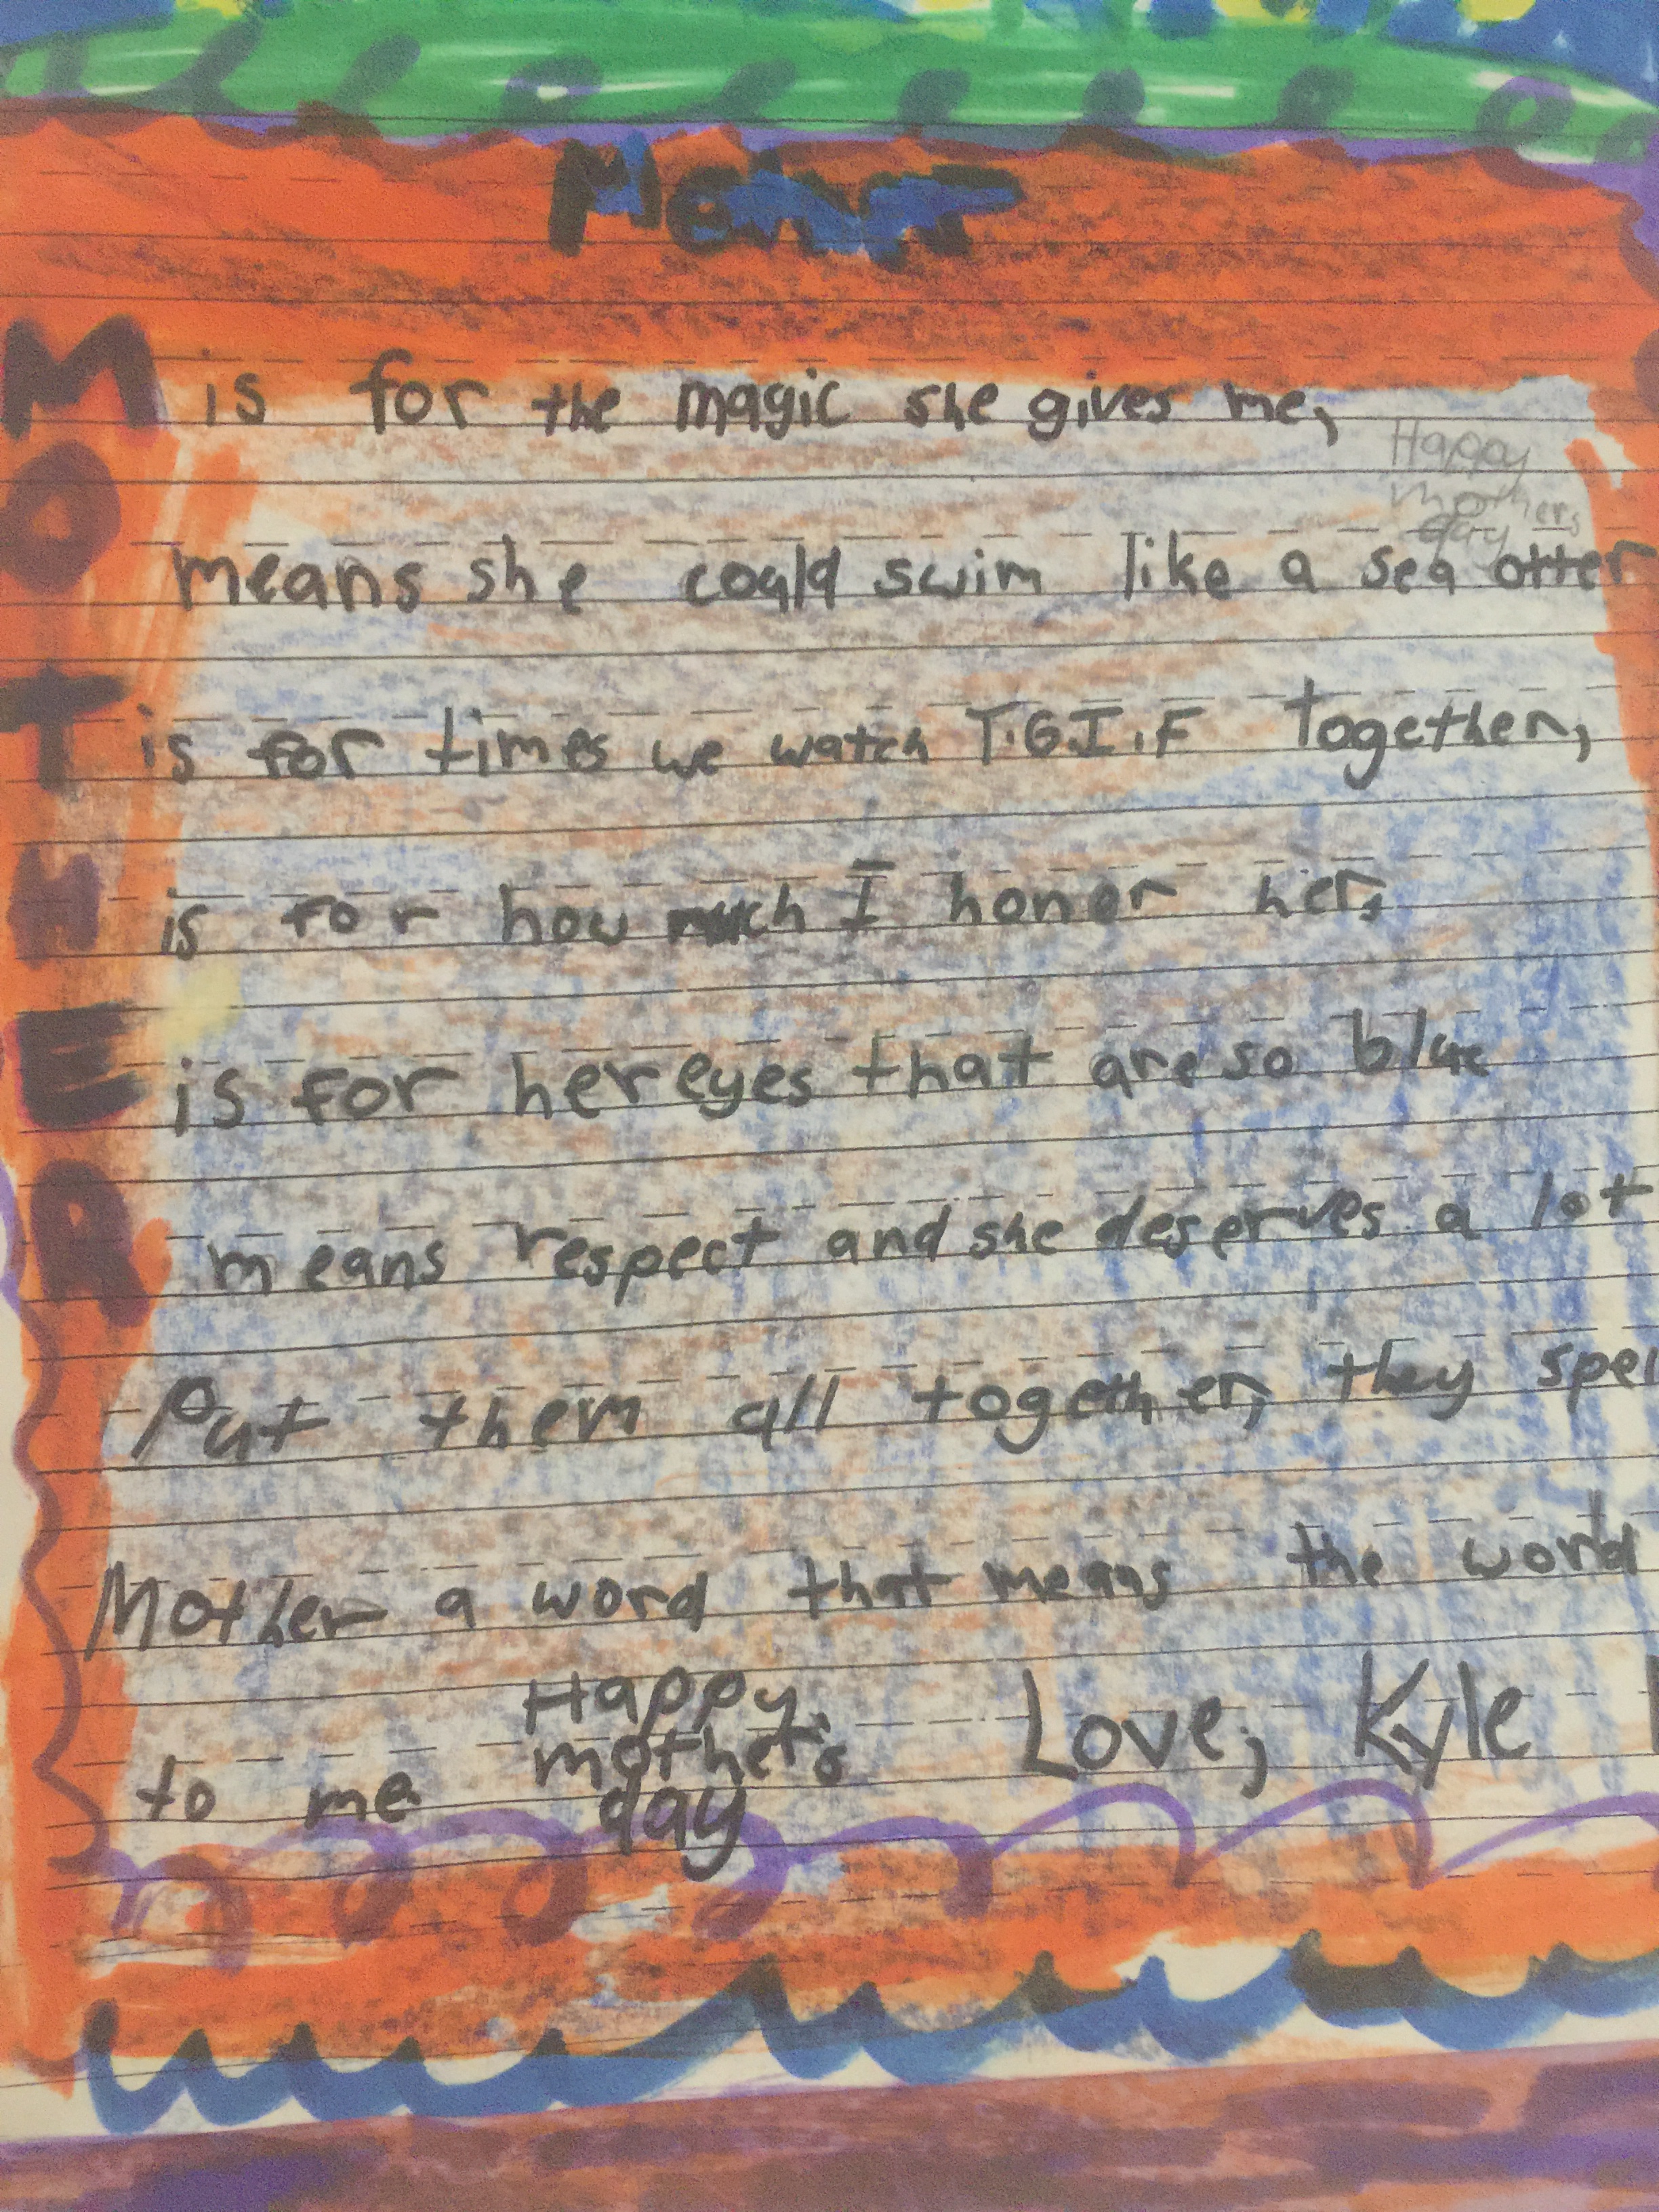 M is for the magic she gives me,
Happy
mothers
day
O means she could swim like a sea otter
T is for times we watch T.G.I.F together,
H is for how much I honor her,
E is for her eyes that are so blue
R means respect and she deserves a lot
Put them all together, they spel
Mother a word that means the world
to me
Happy
mother's
day
Love, Kyle